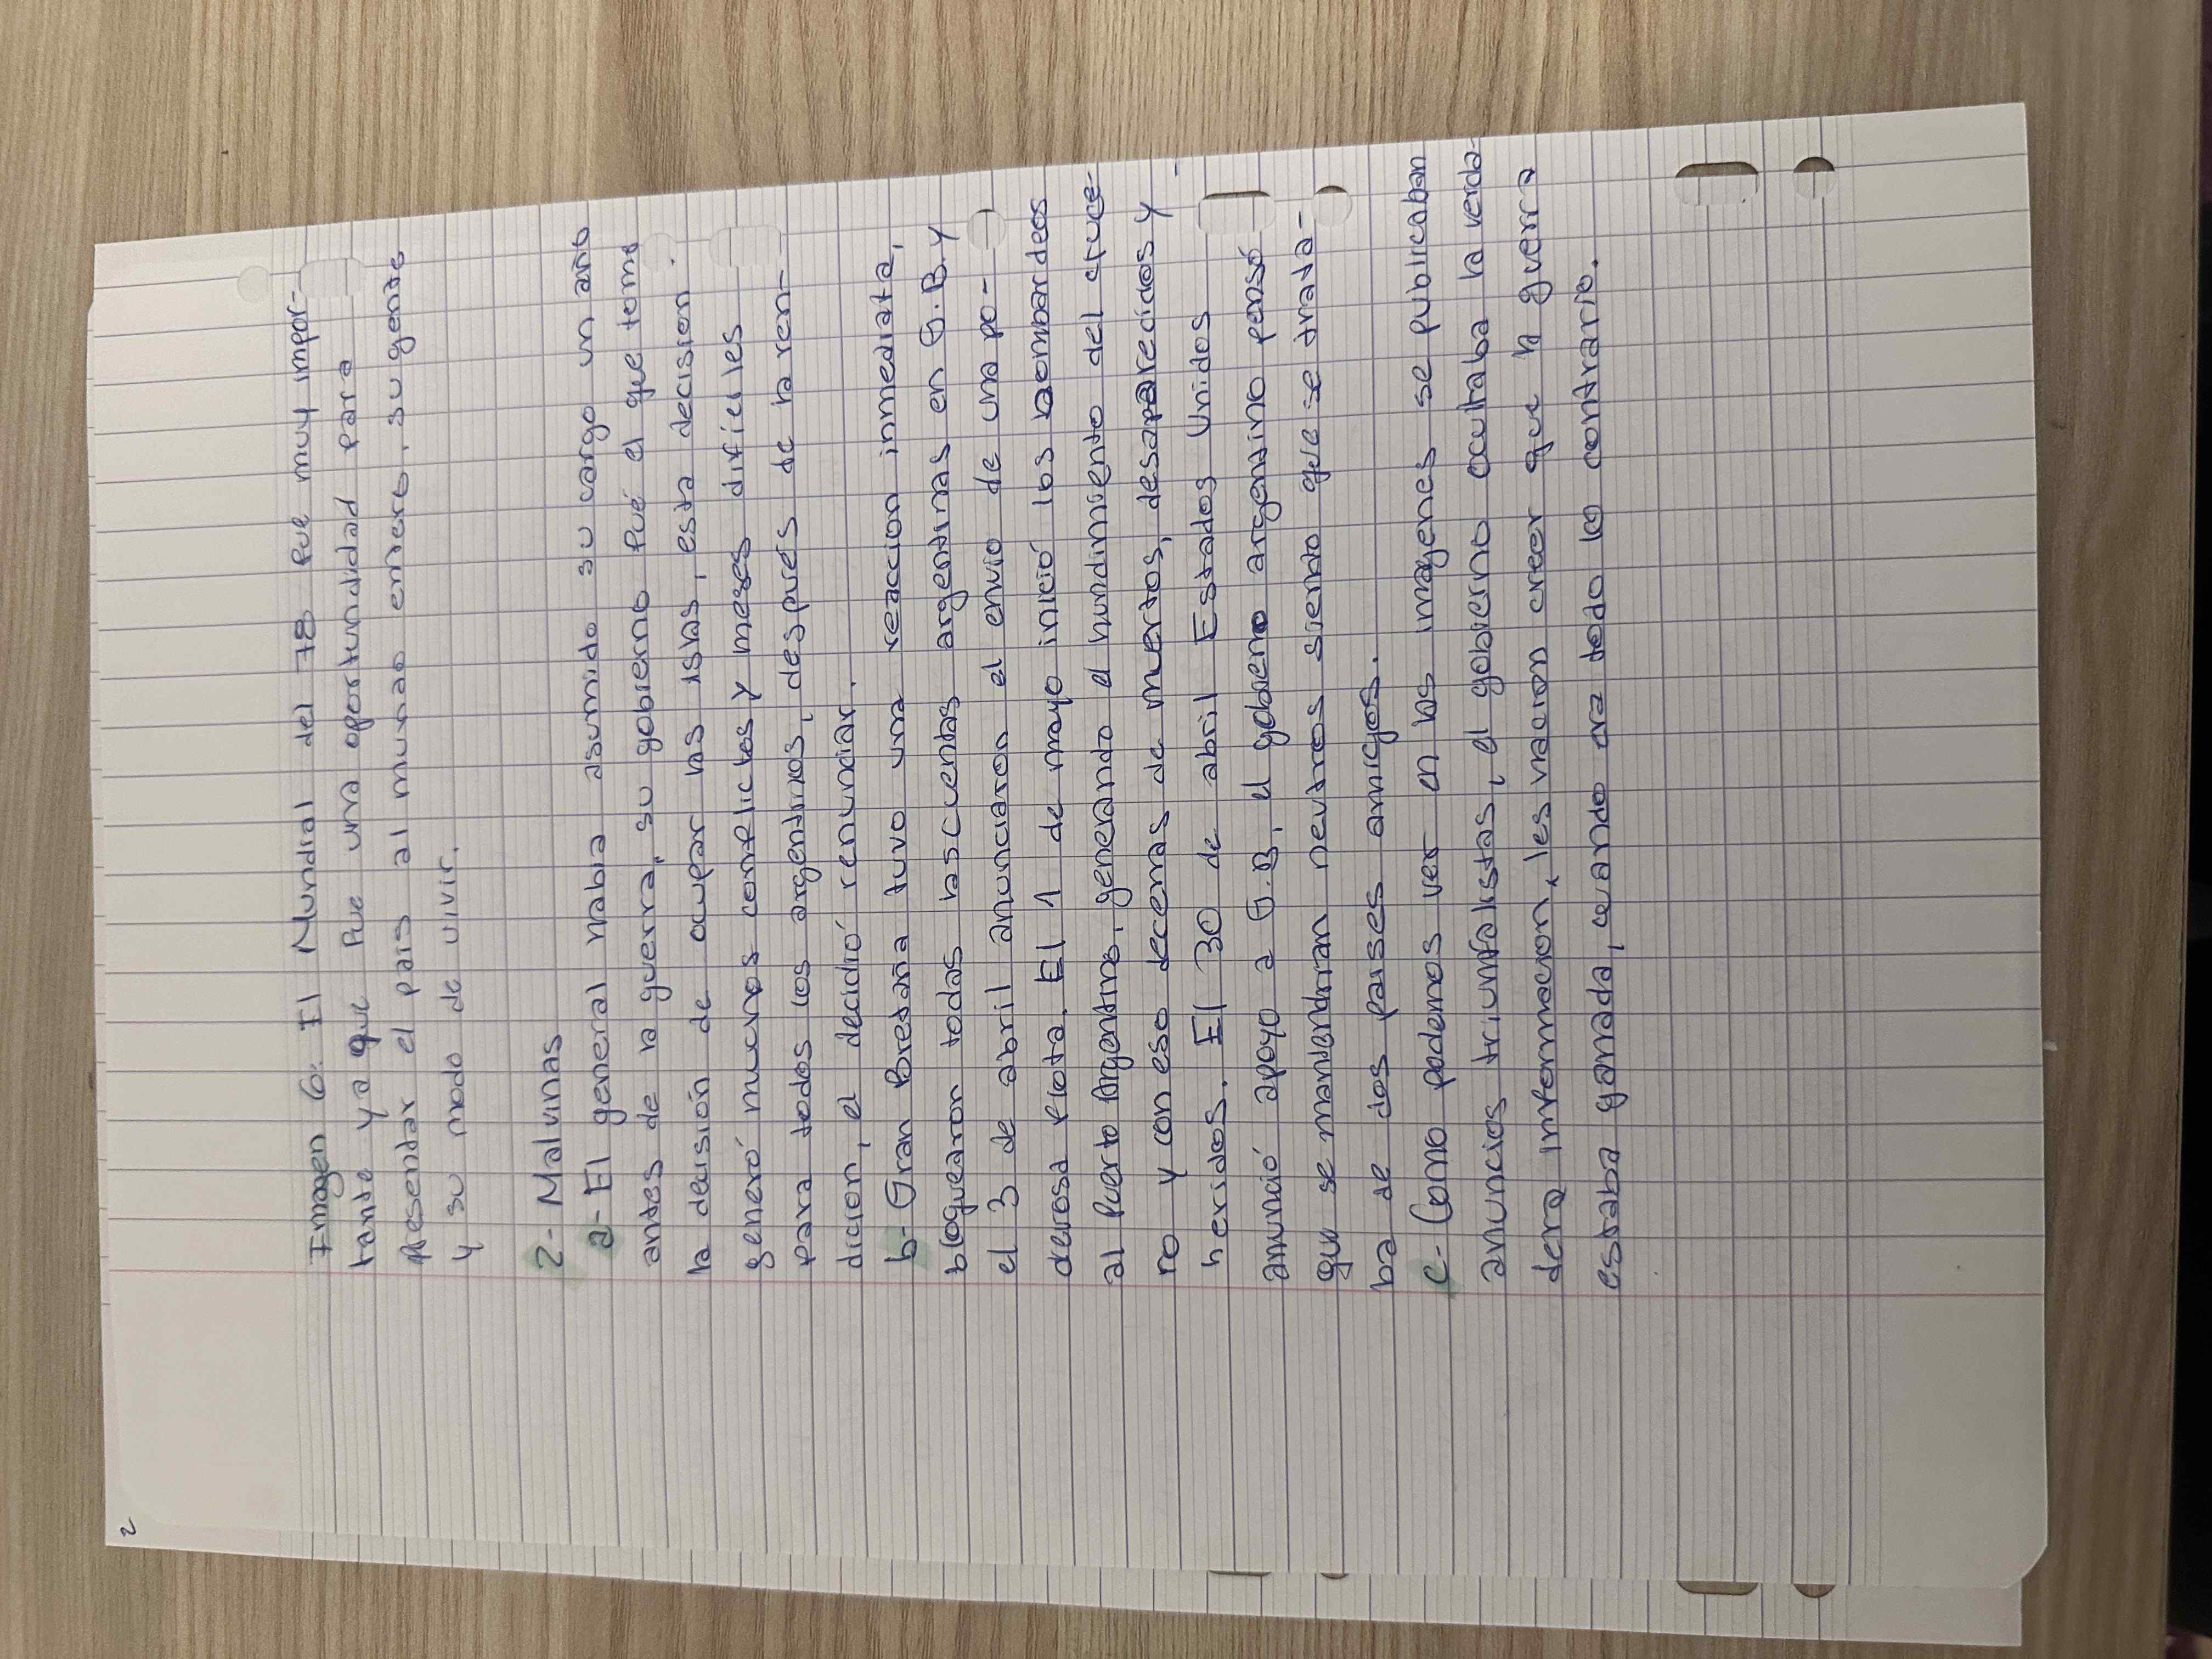 2
Imagen 6: El Mundial del 78 fue muy impor-
tante ya que fue una oportunidad para
presentar el pais al mundo entero, su gente
y su modo de vivir.
2- Malvinas
a- El general habia asumido su cargo un año
antes de la guerra, su gobierno fué el que tomo
la decisión de ocupar las islas, esta decision
generó muchos conflictos y meses dificiles
para todos los argentinos, después de la ren-
dicion, el decidió renunciar.
b- Gran Bretaña tuvo una reaccion inmediata,
bloquearon todas las cuentas argentinas en G.B. y
el 3 de abril anunciaron el envio de una po-
derosa flota. El 1 de mayo inició los bombardeos
al Puerto Argentino, generando el hundimiento del cruce-
ro y con eso decenas de muertos, desaparecidos y
heridos. El 30 de abril Estados Unidos
anunció apoyo a G.B, el gobierno argentino pensó
que se mantendrian neutros siendo que se trata-
ba de dos paises amigos.
c- Como podemos ver en las imagenes se publicaban
anuncios triunfalistas, el gobierno ocultaba la verda-
dera informacion, les hacion creer que la guerra
estaba ganada, cuando era todo lo contrario.